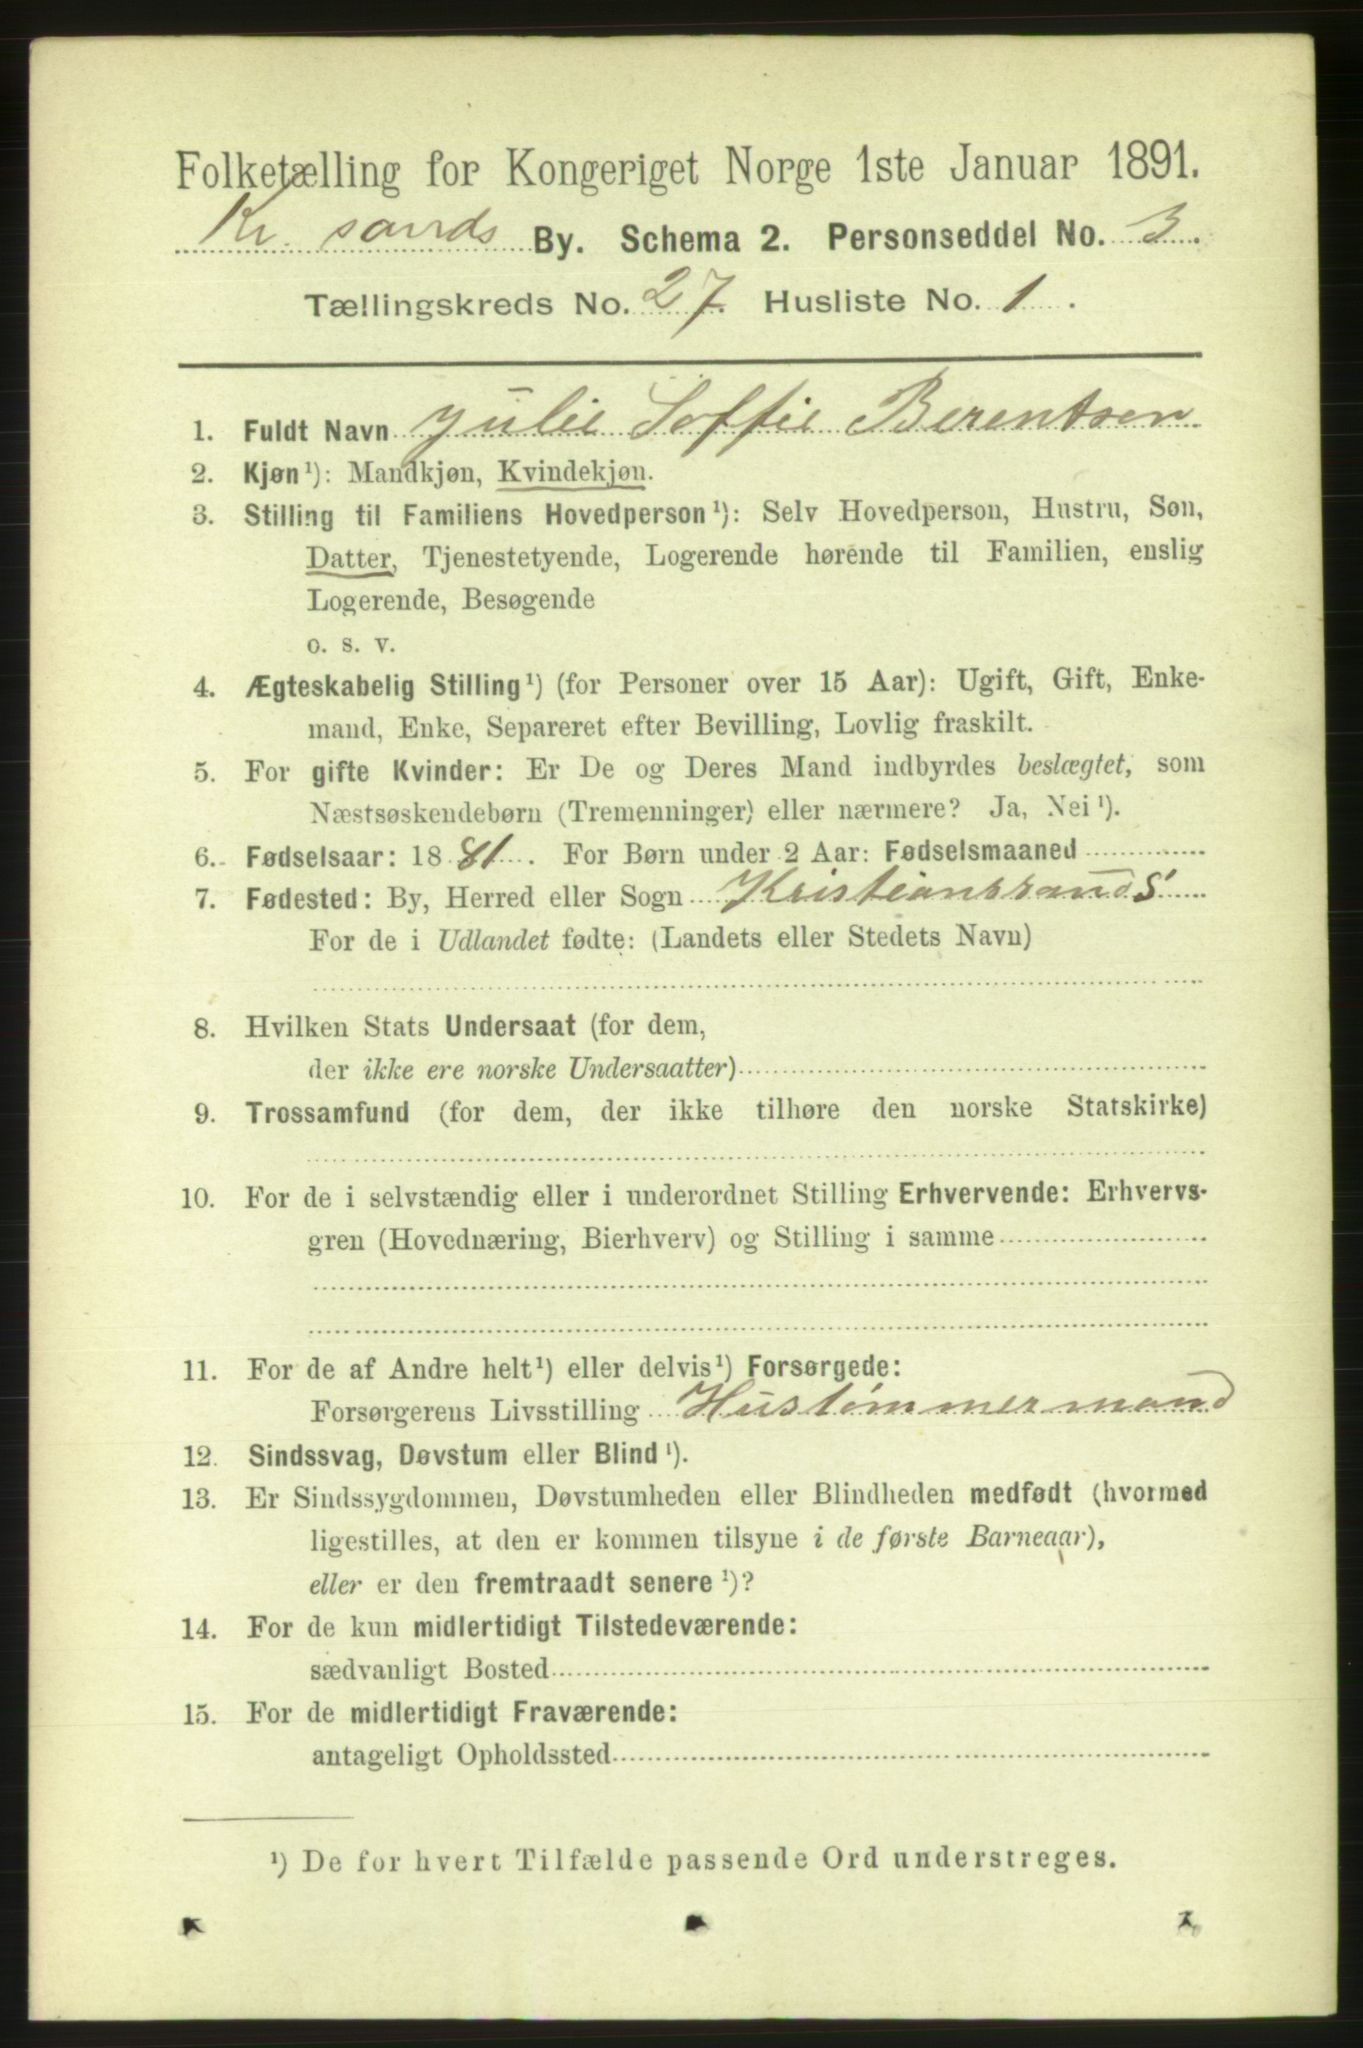 Folketælling for Kongeriget Norge 1ste Januar 1891.
Kr. sands By. Schema 2. Personseddel No. 3.
Tællingskreds No. 27. Husliste No. 1.
1. Fuldt Navn Julie Soffie Berentsen
2. Kjøn¹): Mandkjøn, Kvindekjøn.
3. Stilling til Familiens Hovedperson¹): Selv Hovedperson, Hustru, Søn,
Datter, Tjenestetyende, Logerende hørende til Familien, enslig
Logerende, Besøgende
o. s. v.
4. Ægteskabelig Stilling¹) (for Personer over 15 Aar): Ugift, Gift, Enke-
mand, Enke, Separeret efter Bevilling, Lovlig fraskilt.
5. For gifte Kvinder: Er De og Deres Mand indbyrdes beslægtet, som
Næstsøskendebørn (Tremenninger) eller nærmere? Ja, Nei¹).
6. Fødselsaar: 1881. For Børn under 2 Aar: Fødselsmaaned
7. Fødested: By, Herred eller Sogn Kristiansrands
For de i Udlandet fødte: (Landets eller Stedets Navn)
8. Hvilken Stats Undersaat (for dem,
der ikke ere norske Undersaatter)
9. Trossamfund (for dem, der ikke tilhøre den norske Statskirke)
10. For de i selvstændig eller i underordnet Stilling Erhvervende: Erhvervs-
gren (Hovednæring, Bierhverv) og Stilling i samme
11. For de af Andre helt¹) eller delvis¹) Forsørgede:
Forsørgerens Livsstilling Hustømmermand
12. Sindssvag, Døvstum eller Blind¹).
13. Er Sindssygdommen, Døvstumheden eller Blindheden medfødt (hvormed
ligestilles, at den er kommen tilsyne i de første Barneaar),
eller er den fremtraadt senere¹)?
14. For de kun midlertidigt Tilstedeværende:
sædvanligt Bosted
15. For de midlertidigt Fraværende:
antageligt Opholdssted
¹) De for hvert Tilfælde passende Ord understreges.